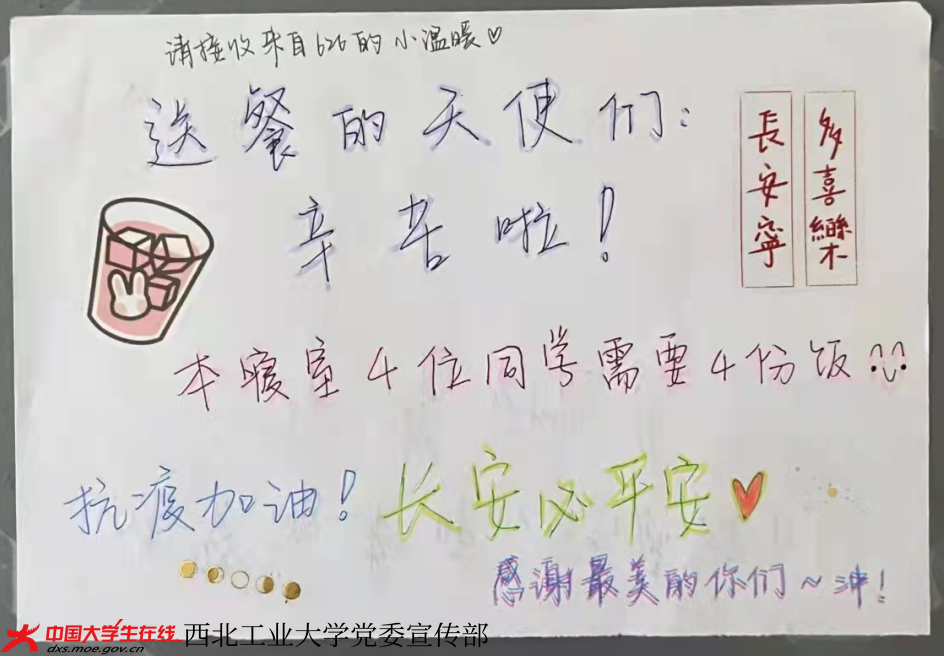 请接收来自626的小温暖♡
送餐的天使们:
辛苦啦!
多喜樂
長安寧
本寝室4位同学需要4份饭
抗疫加油!
长安必平安
感谢最美的你们~冲!
中国大学生在线
dxs.moe.gov.cn
西北工业大学党委宣传部